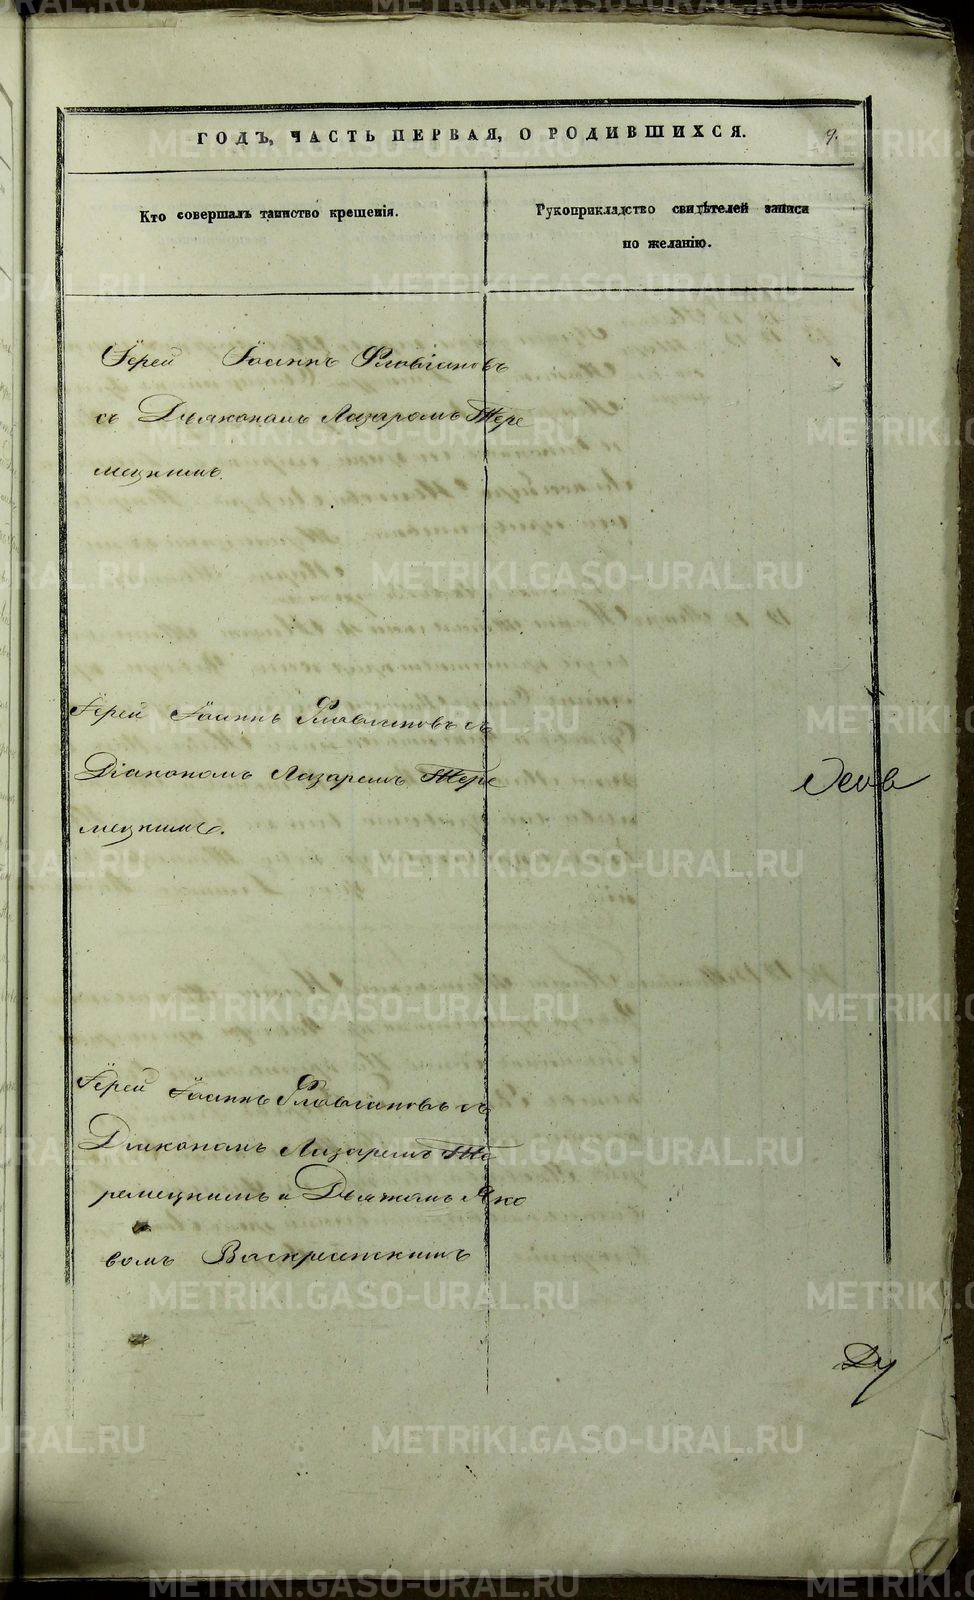 ГОДЪ, ЧАСТЬ ПЕРВАЯ, О РОДИВШИХСЯ.
9.
Кто совершалъ таинство крещенія.
Рукоприкладство свидѣтелей записи
по желанію.
Іерей Іоаннъ Флавіановъ
съ Дьякономъ Лазаромъ Тере
мецкимъ.
Іерей Іоаннъ Флавіановъ съ
Діакономъ Лазаремъ Тере
мецкимъ.
Іерей Іоаннъ Флавіановъ съ
Діакономъ Лазаремъ Те
ремецкимъ и Дьячкомъ Яко
вомъ Воскресенскимъ
METRIKI.GASO-URAL.RU